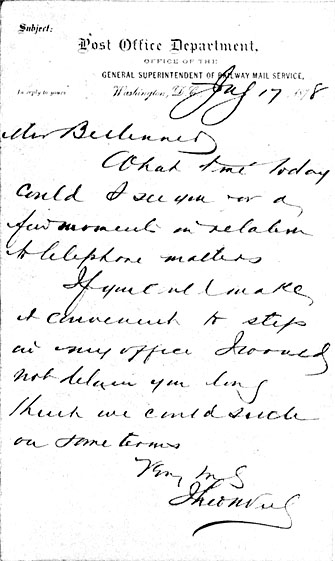 Subject:
Post Office Department,
OFFICE OF THE
GENERAL SUPERINTENDENT OF RAILWAY MAIL SERVICE,
In reply to yours
Washington, D.C. 17 1878
What time today
could I see you for a
few moments in relation
to telephone matters
If you will make
it convenient to step
in my office I would
not detain you long
think we could
on some terms
Very